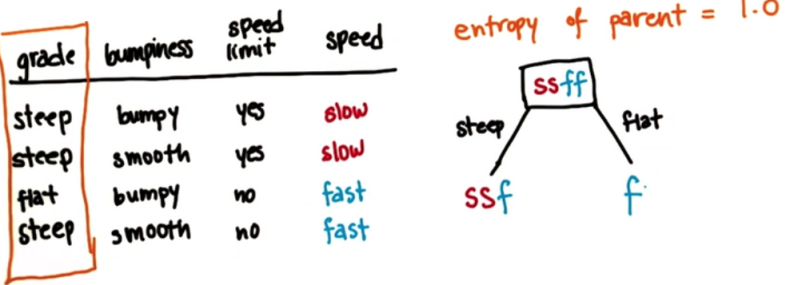 grade bumpiness speed limit speed
steep bumpy yes slow
steep smooth yes slow
flat bumpy no fast
steep smooth no fast
entropy of parent = 1.0
ssff
steep flat
ssf f